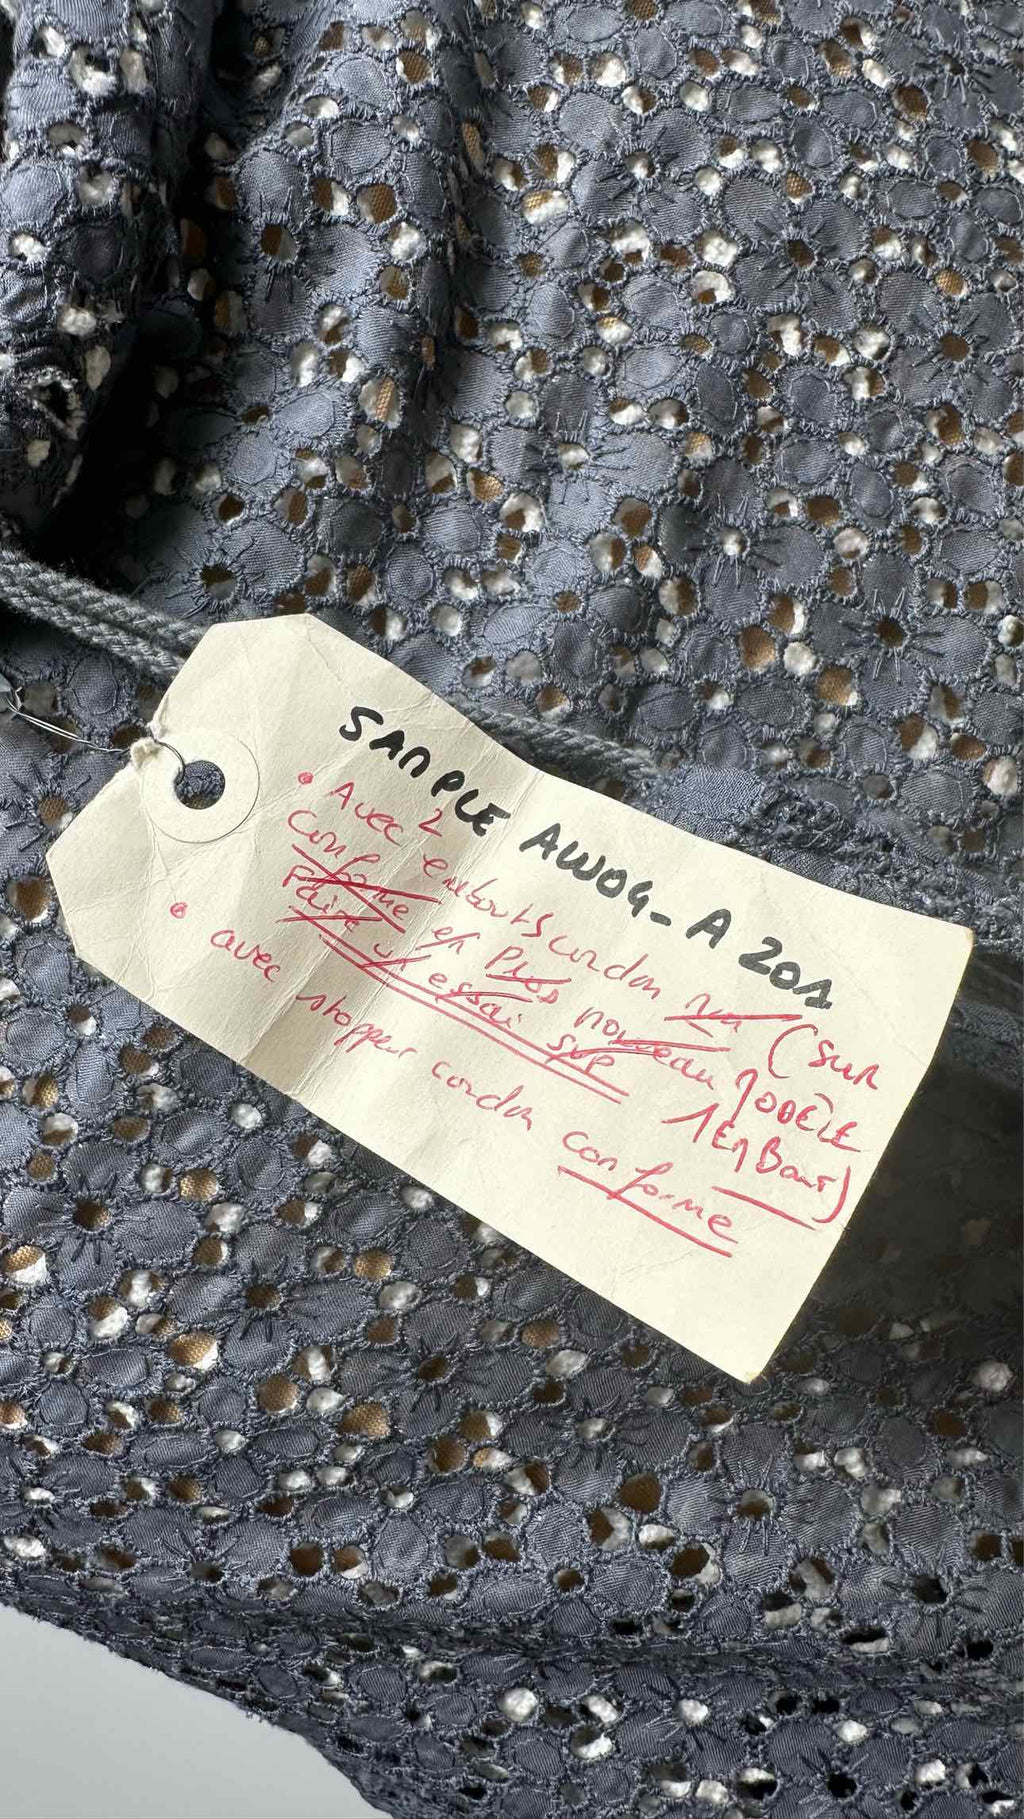 SAMPLE AW09-A201
• Avec 2 embouts cordon non (sur
conforme en prod nouveau MODÈLE
faire un essai svp 1 EMBOUT)
• avec stopper cordon conforme